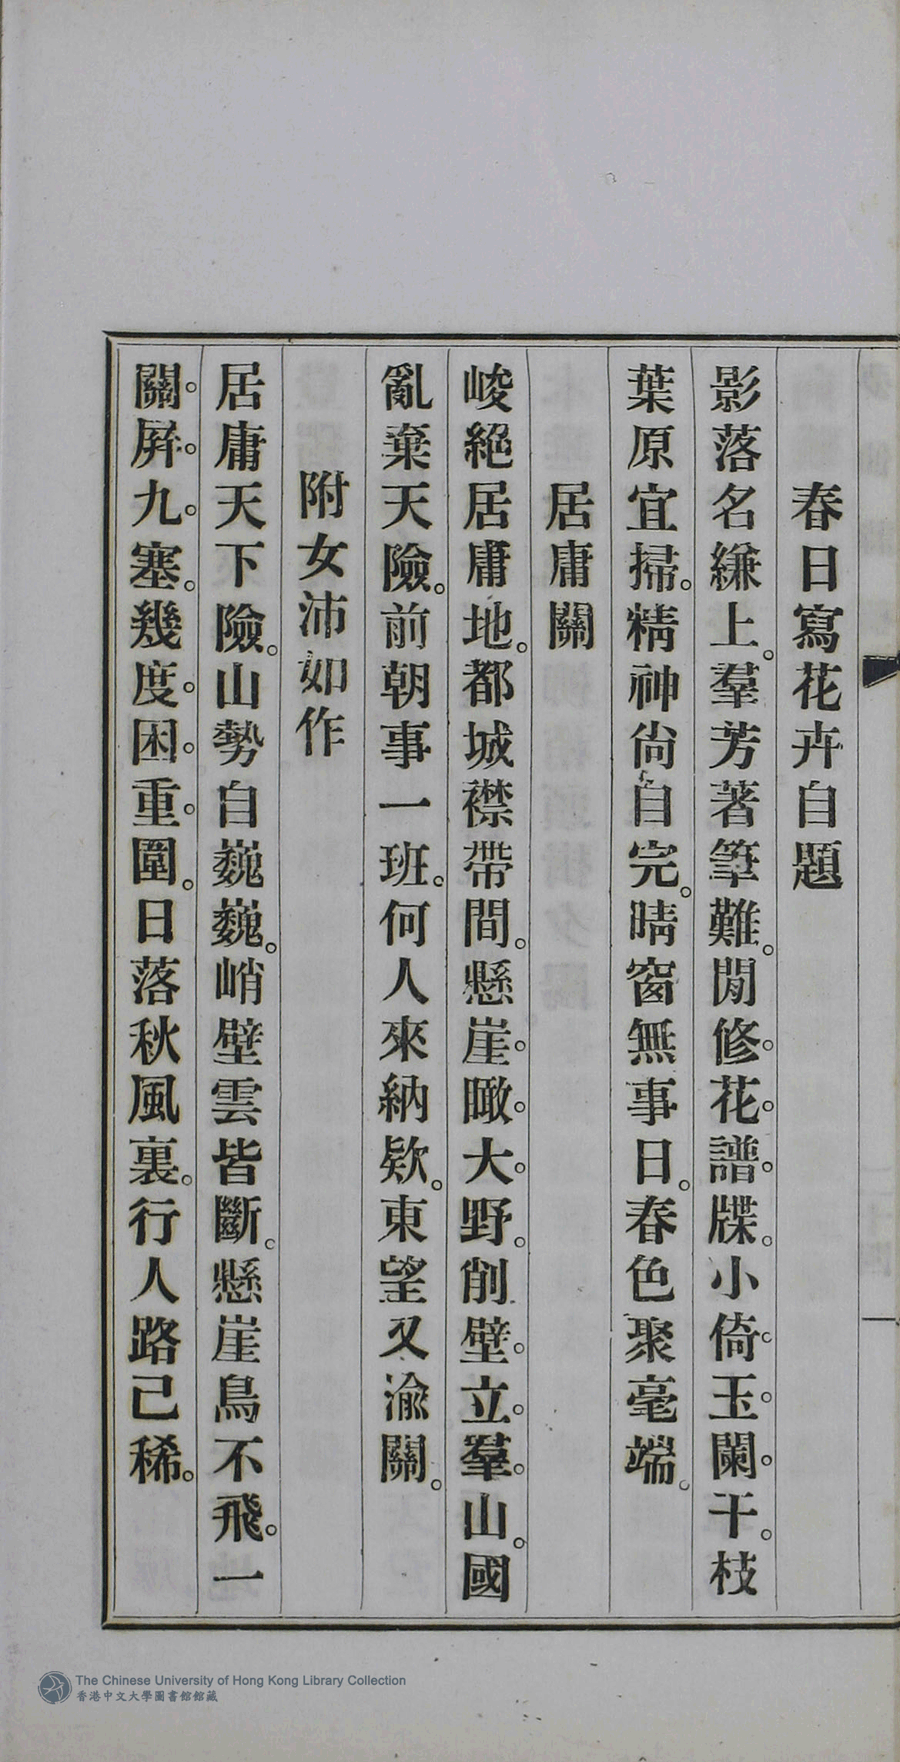 春日寫花卉自題
影落名縑上。羣芳著筆難。閒修花譜牒。小倚玉闌干。枝
葉原宜掃。精神尙自完。晴窗無事日。春色聚毫端。
居庸關
峻絕居庸地。都城襟帶間。懸崖瞰大野。削壁立羣山。國
亂棄天險。前朝事一班。何人來納欵。東望又渝關。
附女沛如作
居庸天下險。山勢自巍巍。峭壁雲皆斷。懸崖鳥不飛。一
關屛九塞。幾度困重圍。日落秋風裏。行人路已稀。
The Chinese University of Hong Kong Library Collection
香港中文大學圖書館館藏